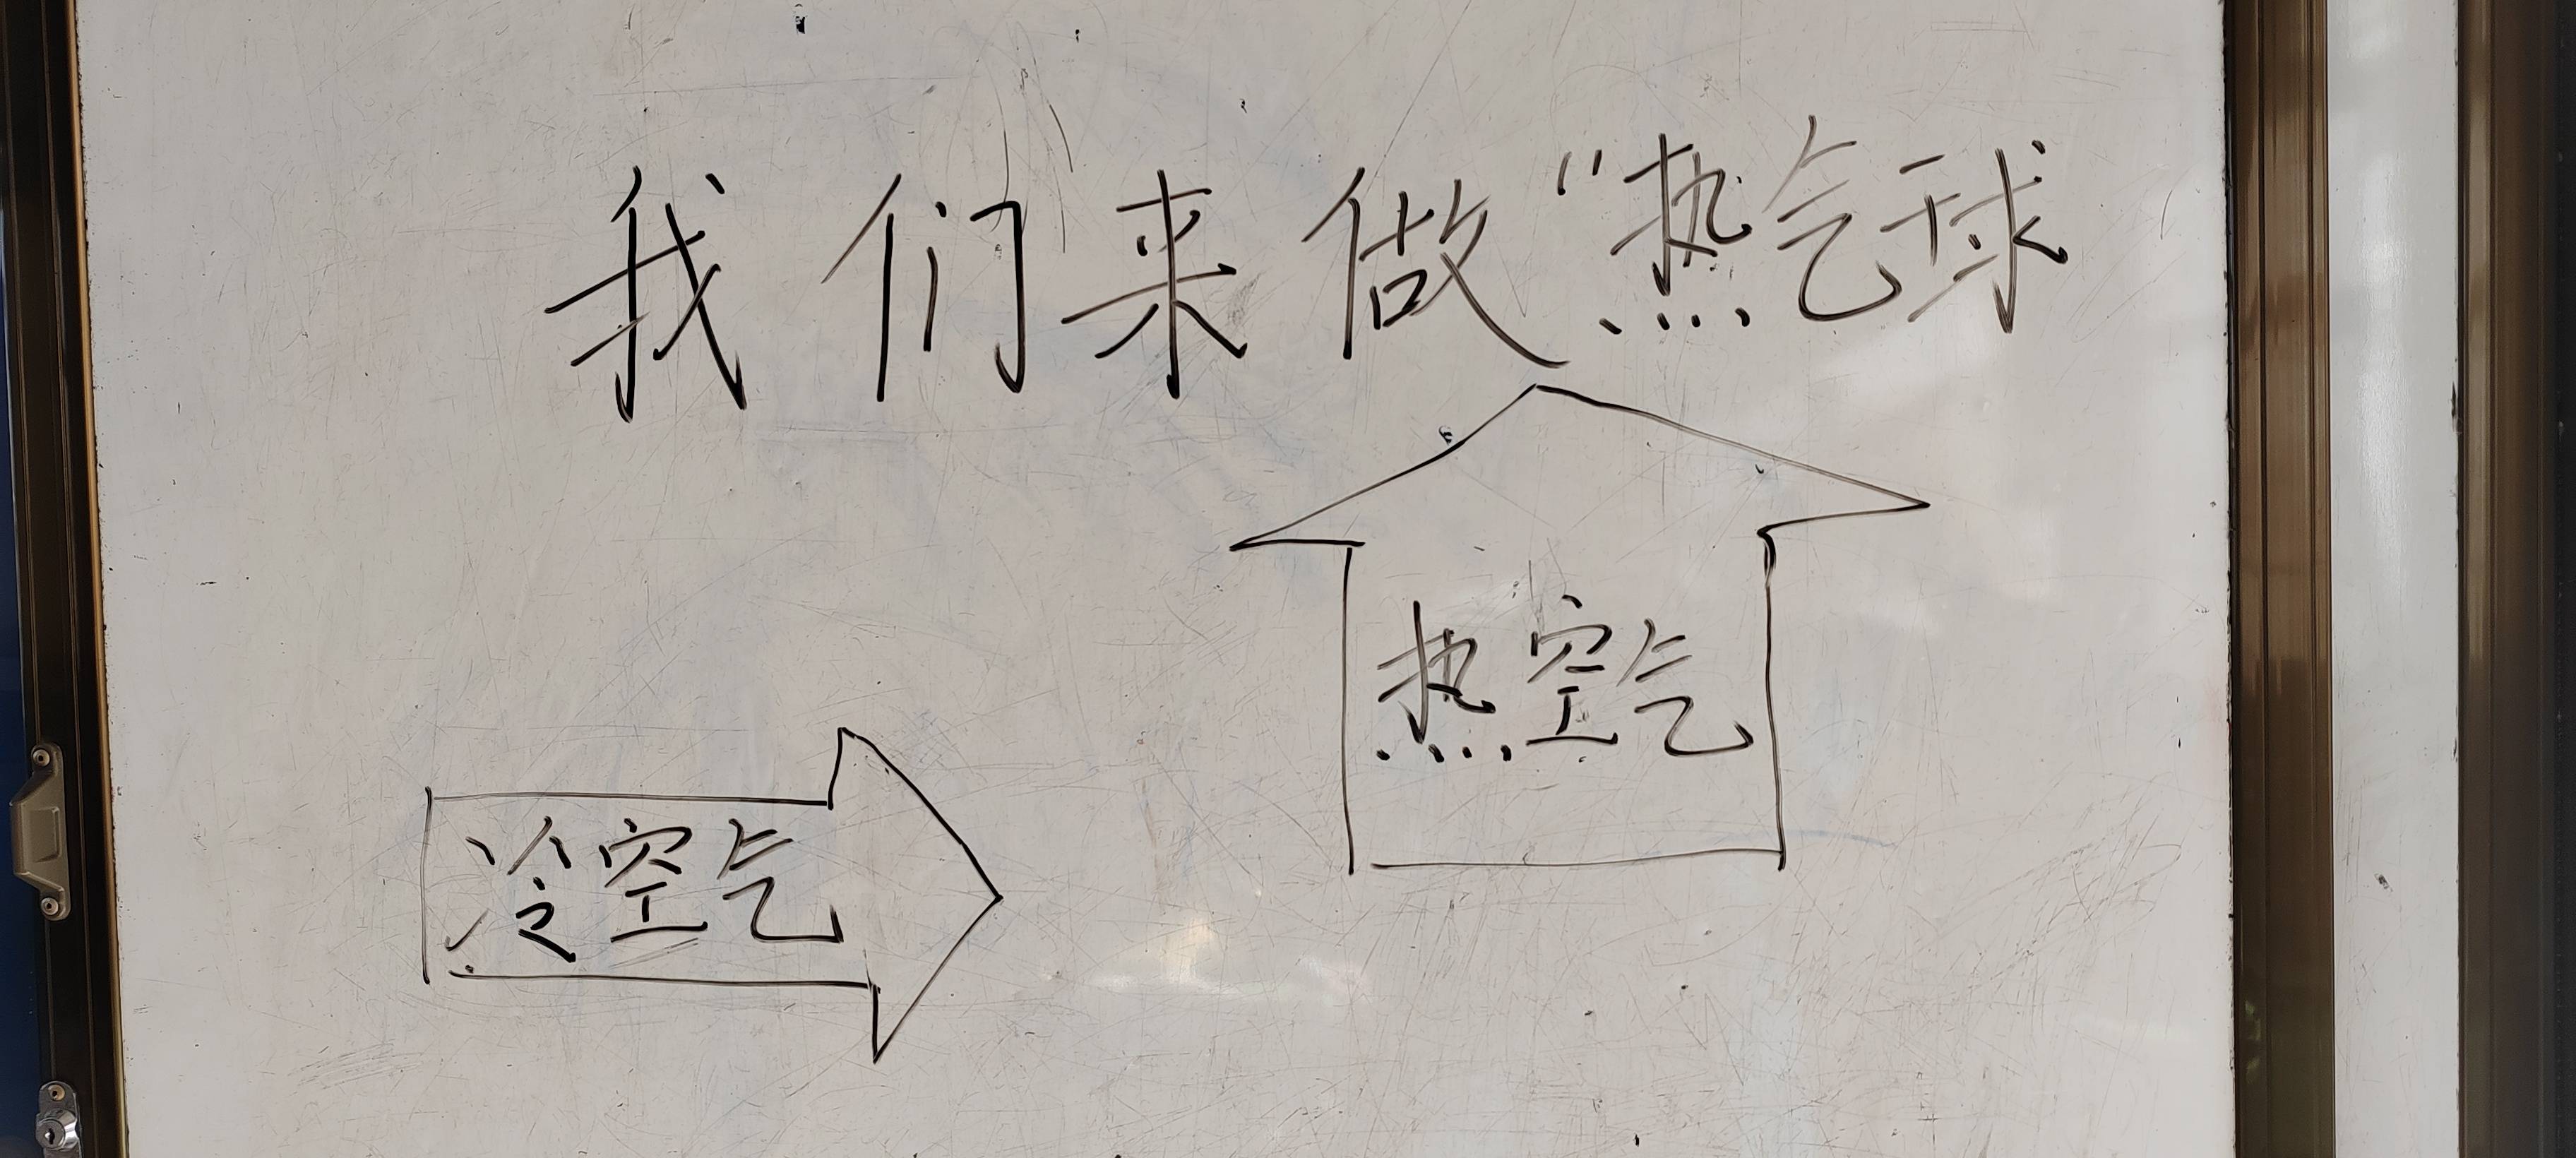 我们来做“热气球
热空气
冷空气